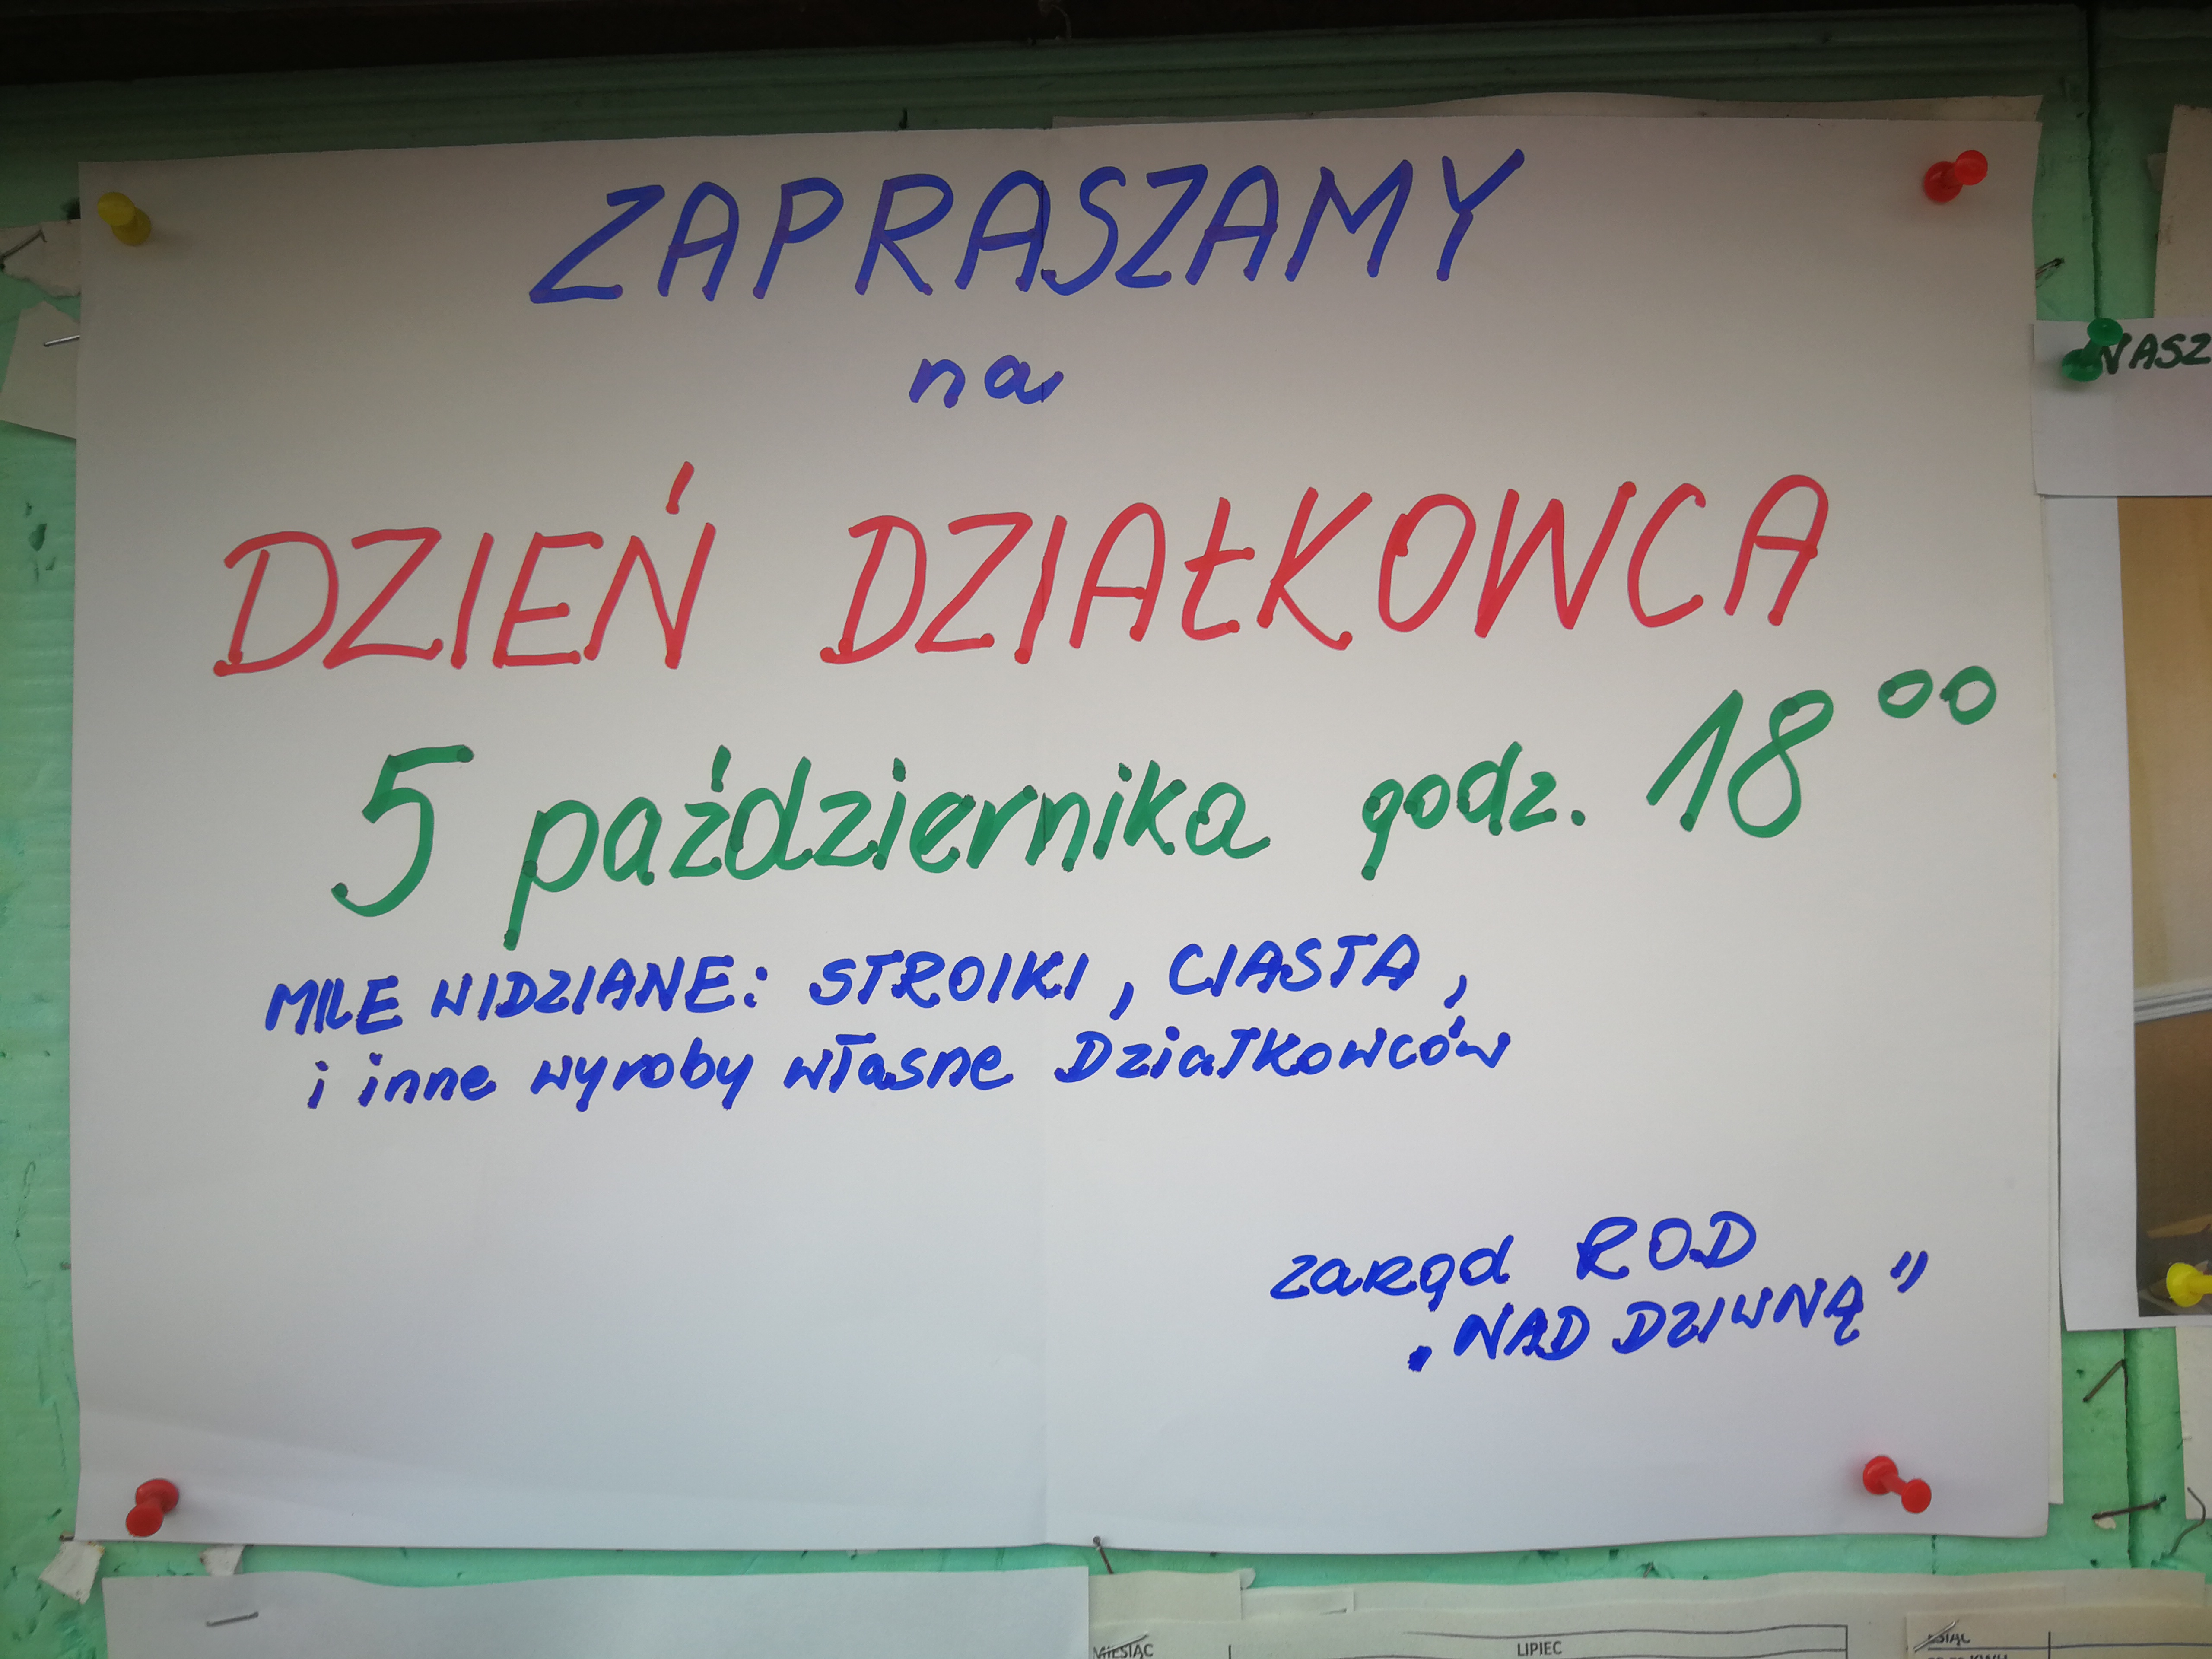 ZAPRASZAMY
na
DZIEŃ DZIAŁKOWCA
5 października godz. 18⁰⁰
MILE WIDZIANE: STROIKI, CIASTA,
i inne wyroby własne Działkowców
zarąd ROD
„NAD DZIWNĄ"
NASZ
MIESIĄC
LIPIEC